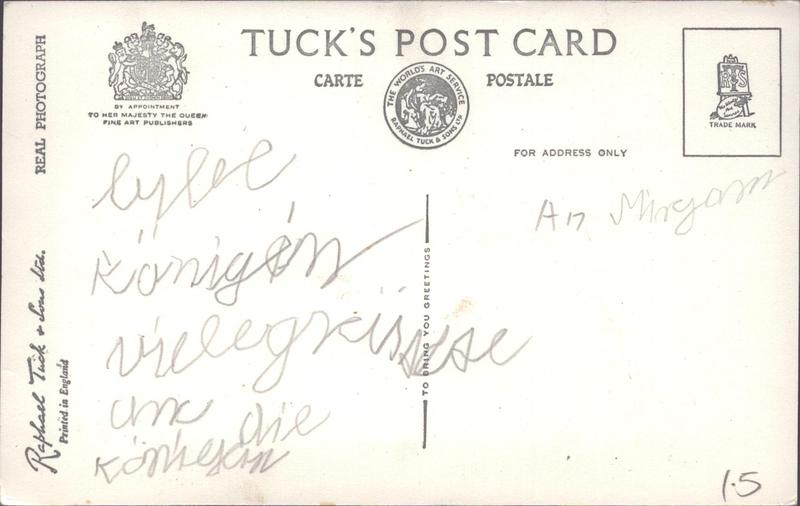 TUCK'S POST CARD
CARTE POSTALE
BY APPOINTMENT
TO HER MAJESTY THE QUEEN
FINE ART PUBLISHERS
THE WORLD'S ART SERVICE
RAPHAEL TUCK & SONS LTD
TRADE MARK
FOR ADDRESS ONLY
REAL PHOTOGRAPH
Raphael Tuck & Sons Ltd.
Printed in England
TO BRING YOU GREETINGS
königin
vielegrüsse
die
An Miryam
1.5